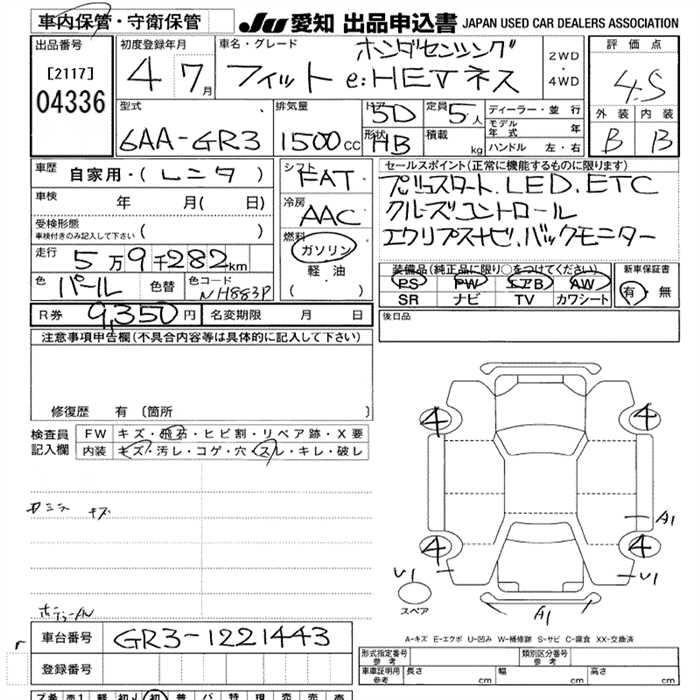 車内保管・守衛保管 JU 愛知 出品申込書 JAPAN USED CAR DEALERS ASSOCIATION
出品番号 初度登録年月 車名・グレード ホンダセンシング 2WD・4WD 評価点
[2117] 04336 4 7月 フィット e:HEVネス 4.5
型式 排気量 ドア 5D 定員 5人 ディーラー・並行 外装 内装
6AA-GR3 1500cc 形状 HB 積載 kg モデル年式 年 B B
ハンドル 左・右
車歴 自家用・(レンタ) シフト FAT セールスポイント(正常に機能するものに限ります)
車検 年 月( 日) 冷房 AAC プッシュスタート.LED.ETC
受検形態 ( ) クルーズコントロール
車検付きのみ記入して下さい 燃料 エクリプスナビ.バックモニター
走行 5万9千282km ガソリン
色 パール 色替 色コード NH883P 軽油 ( )
装備品(純正品に限り○をつけてください) 新車保証書
PS PW エアB AW 有・無
SR ナビ TV カワシート
R券 9,350円 名変期限 月 日 後日品
注意事項申告欄(不具合内容等は具体的に記入して下さい)
修復歴 有〔箇所 〕
検査員記入欄 FW キズ・飛石・ヒビ割・リペア跡・X要
内装 キズ・汚レ・コゲ・穴・スレ・キレ・破レ
キズ
4 4
A1
4 4
U1 U1
スペア A1
A-キズ E-エクボ U-凹み W-補修跡 S-サビ C-腐食 XX-交換済
r 車台番号 GR3-1221443
登録番号
形式指定番号 参考 類別区分番号 参考
車車証明用 参考 長さ cm 幅 cm 高さ cm